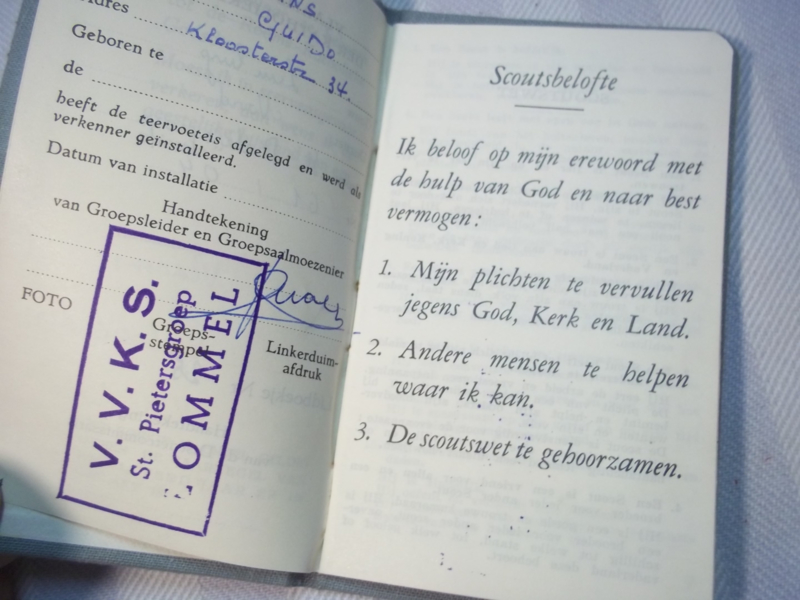 NS
Adres
GUIDO
Kloosterstr 34.
Geboren te
de
heeft de teervoeteis afgelegd en werd als
verkenner geïnstalleerd.
Datum van installatie
Handtekening
van Groepsleider en Groepsaalmoezenier
FOTO
Groeps-
stempel
Linkerduim-
afdruk
V. V. K. S.
St. Pietersgroep
LOMMEL
Scoutsbelofte
Ik beloof op mijn erewoord met
de hulp van God en naar best
vermogen:
1. Mijn plichten te vervullen
jegens God, Kerk en Land.
2. Andere mensen te helpen
waar ik kan.
3. De scoutswet te gehoorzamen.